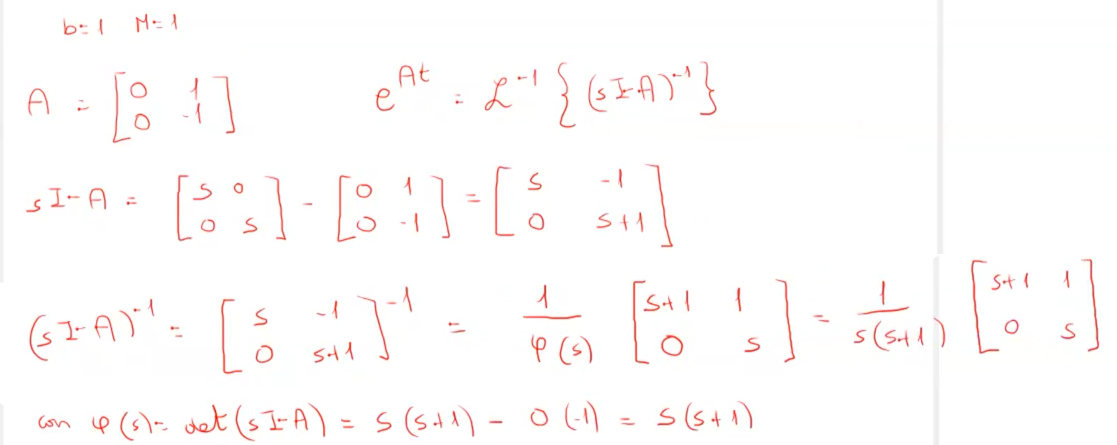 b=1 M=1
A = [0 1; 0 -1] e^{At} = ℒ^{-1} { (sI-A)^{-1} }
sI-A = [s 0; 0 s] - [0 1; 0 -1] = [s -1; 0 s+1]
(sI-A)^{-1} = [s -1; 0 s+1]^{-1} = 1/φ(s) [s+1 1; 0 s] = 1/s(s+1) [s+1 1; 0 s]
con φ(s) = det(sI-A) = s(s+1) - 0(-1) = s(s+1)